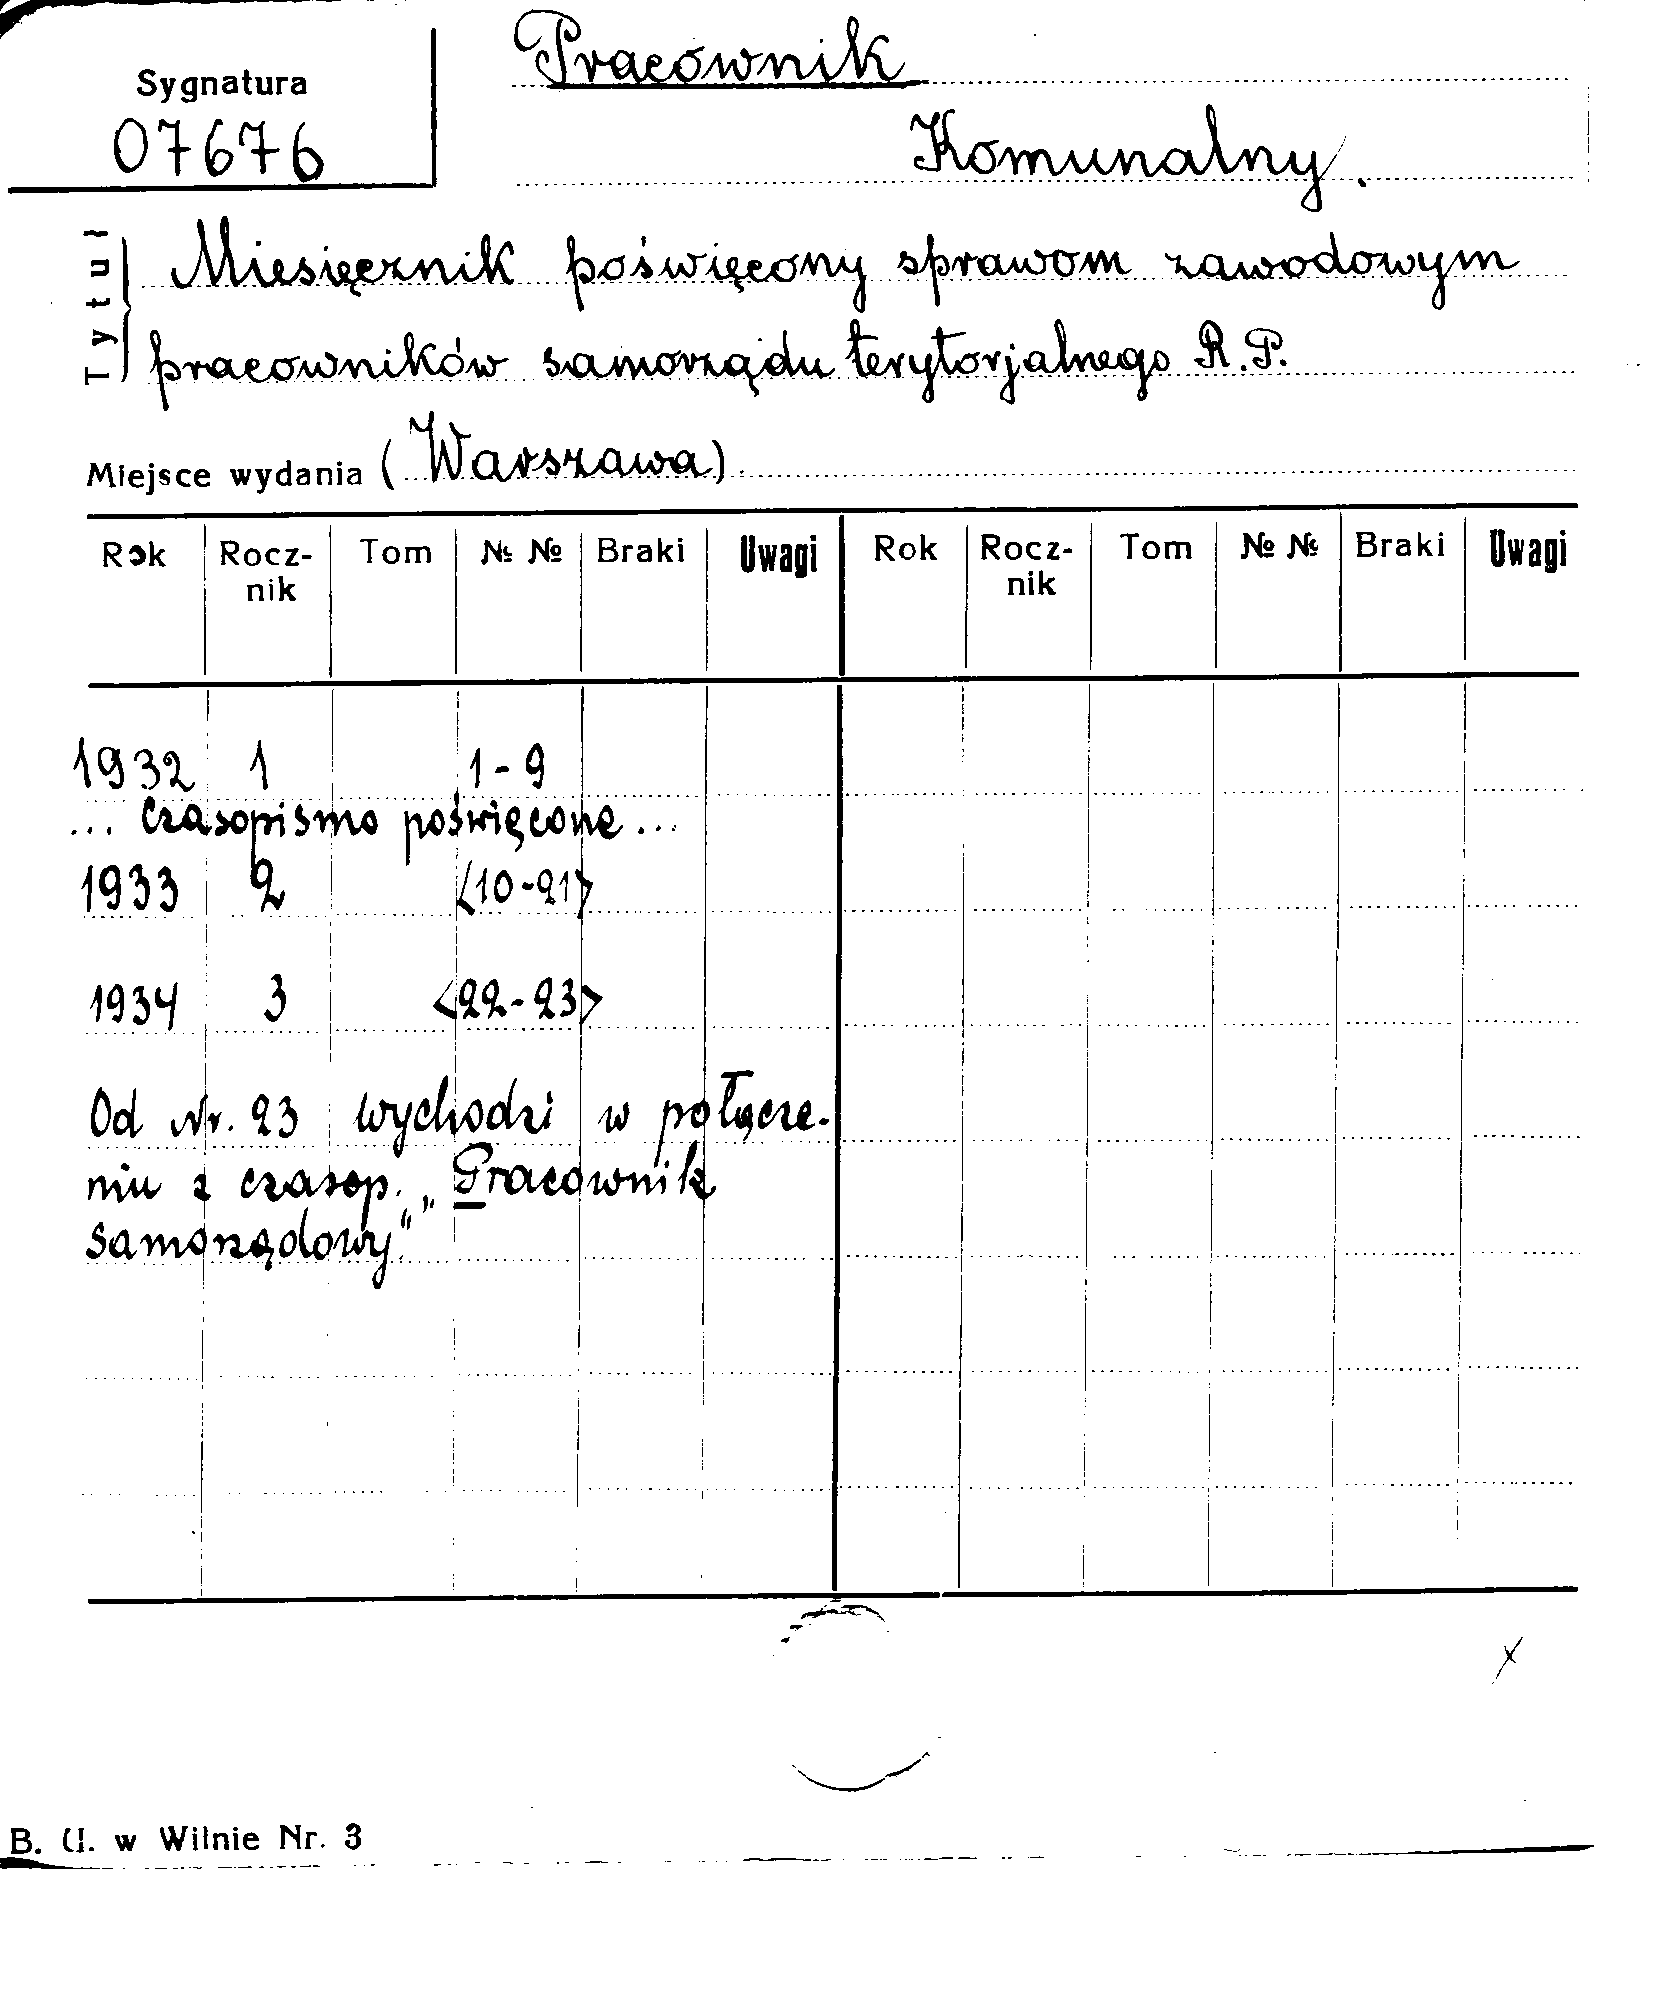 Sygnatura
07676
Pracownik
Komunalny.
Tytuł
Miesięcznik poświęcony sprawom zawodowym
pracowników samorządu terytorjalnego R.P.
Miejsce wydania (Warszawa)
Rok Rocz-nik Tom № № Braki Uwagi Rok Rocz-nik Tom № № Braki Uwagi
1932 1 1-9
... Czasopismo poświęcone ...
1933 2 <10-21>
1934 3 <22-23>
Od Nr. 23 wychodzi w połącze-
niu z czasop. „Pracownik
samorządowy."
B. U. w Wilnie Nr. 3